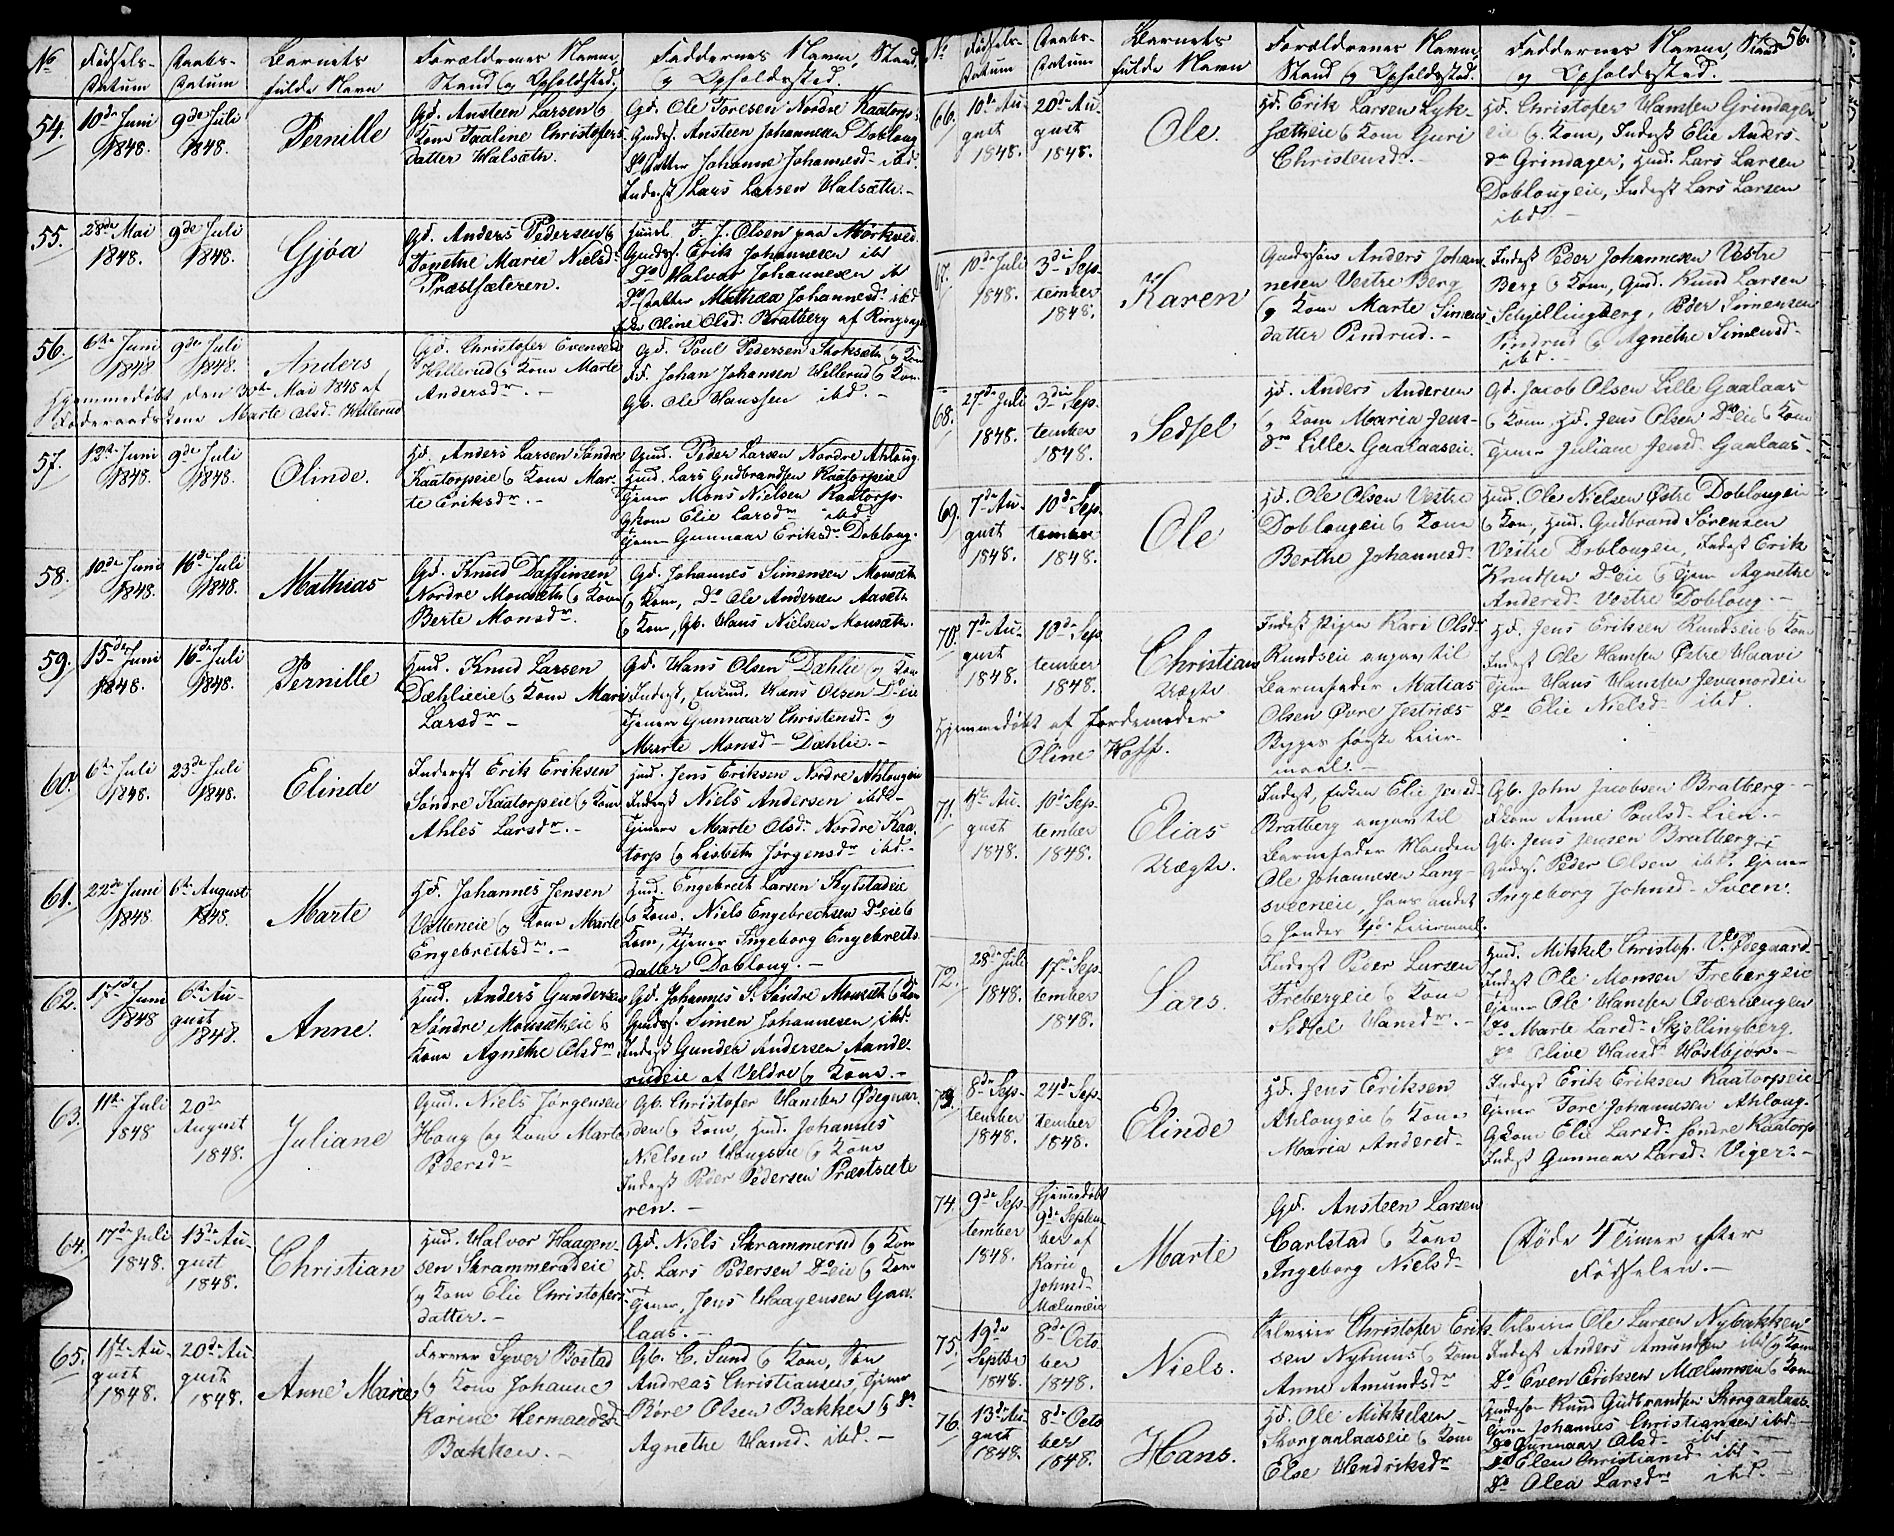 No
Fødsels-
datum
Daabs-
datum
Barnets
fulde Navn
Forældrenes Navne,
Stand og Opholdsted.
Faddernes Navne, Stand
og Opholdssted.
54.
10de Juni
1848.
9de Juli
1848.
Pernille
Gd. Ansteen Larsen og
Kone Paaline Christophers
datter Halsæth.
Gd. Ole Toresen Nordre Kaatorp
Gaards. Ansteen Johannesen Doblong
Do datter Johanne Johannesd. ibd.
Inderst Lars Larsen Halsæth.
55.
28de Mai
1848.
9de Juli
1848.
Gjøa
Gd. Anders Pedersen og
Dorethe Marie Nielsd.
Præstsæteren.
F. J. Olsen paa Mørkved
Gaards. Erik Johannesen ib
Do Halvor Johannesen ib
Do datter Mathea Johannesd. ibd
Oline Olsd. Bratberg af Ringsager
56.
6te Juni
1848
9de Juli
1848.
Anders
Gd. Christofer Evensen
Hillerud og Kone Marte
Andersdr. -
Gd. Poul Pedersen Stoksæth og Kone
Fd. Johan Johansen Hillerud og Kone
Gb. Ole Hanssen ibd. -
Hjemmedøbt den 30te Mai 1848 af
Føderaadskone Marte Olsd. Hillerud
57.
13de Juni
1848.
9de Juli
1848.
Olinde.
Hd. Anders Larsen Søndre
Kaatorpeie og Kone Mar-
te Eriksdr. -
Gmd. Peder Larsen Nordre Ahlong
Hmd. Lars Gudbrandsen Kaatorpeie
Tjener Mons Nielsen Kaatorp
Gkone Elie Larsdr. ibd.
Tjener Gunnaar Eriksdr. Doblong.
58.
10de Juni
1848.
16de Juli
1848.
Mathias
Gd. Knud Daffinsen
Nordre Monsæth og Kone
Berte Monsdr.
Gd. Johannes Simensen Monsæth
og Kone, Do Ole Andersen Aaseth
og Kone, Gb. Hans Nielsen Monsæth.
59.
15de Juni
1848.
16de Juli
1848.
Pernille
Hmd. Knud Larsen
Dæhlieeie og Kone Mari
Larsdr. -
Gd. Hans Olsen Dæhlie og Kone
Inderst, Enkemd. Hans Olsen Do eie
Tjener Gunnaar Christensd. og
Marte Monsd. Dæhlie. -
60.
6te Juli
1848.
23de Juli
1848.
Elinde
Inderst Erik Eriksen
Søndre Kaatorpeie og Kone
Ahles Larsdr. -
Hmd. Jens Eriksen Nordre Ahlongeie
Inderst Niels Andersen ibd. -
Tjener Marte Olsd. Nordre Kaa
torp og Lisbeth Jørgensdr. ibd. -
61.
22de Juni
1848.
6te August
1848.
Marte
Hd. Johannes Jensen
Velteneie og Kone Marte
Engebretsdr. -
Hmd. Engebret Larsen Kylstadeie
og Kone. Niels Engebretsen Do eie og
Kone, Tjener Ingeborg Engebrets
datter Doblong. -
62.
17de Juni
1848
6te Au-
gust
1848.
Anne.
Hmd. Anders Gundersen
Søndre Monsætheie og
Kone Agnethe Olsdr.
Gd. Johannes S. Søndre Monseth og Kone
Gaards. Simen Johannesen ibd.
Inderst Gunder Andersen Aande-
rudeie af Veldre og Kone. -
63.
11te Juli
1848
20de
August
1848.
Juliane
Gmd. Niels Jørgensen
Houg og Kone Marte
Pedersdr.
Gb. Christofer Hansen Ødegaar-
den og Kone, Hmd. Johannes
Nielsen Hougseie og Kone
Inderst Peder Pedersen Præstsæte
ren. -
64.
17de Juli
1848.
13de Au-
gust
1848.
Christian
Hmd. Halvor Haagen-
sen Skrammerudeie
og Kone Elie Christofers
datter. -
Gd. Niels Skrammerud og Kone
Hd. Lars Pedersen Do eie og Kone
Tjener, Jens Haagensen Gaa-
laas. -
65.
Au-
gust
1848.
20de Au-
gust
1848.
Anne Marie
Farver Syver Bostad
og Kone Johanne
Karine Hermandsd.
Bakken. -
Gb. C. Sund og Kone, Søn
Andreas Christiansen, Tjener
Børe Olsen Bakken og Do
Agnethe Hansd. ibd. -
56.
No
Fødsels-
datum
Daabs-
datum
Barnets
fulde Navn
Forældrenes Navne,
Stand og Opholdsted.
Faddernes Navne, Stand
og Opholdssted.
66.
10de Au-
gust
1848.
20de Au-
gust
1848.
Ole.
Hd. Erik Larsen Lyk-
sætheie og Kone Guri
Christensdr. -
Hd. Christofer Hansen Grindager
eie og Kone, Inderst Elie Anders-
dr Grindager, Hmd. Lars Larsen
Doblongeie, Inderst Lars Larsen
ibd. -
67.
10de Juli
1848.
3die Sep-
tember
1848.
Karen
Gaardsøn Anders Johan-
nesen Vestre Berg
og Kone Marte Simens-
datter Pindrud. -
Inderst Peder Johannesen Vestre
Berg og Kone, Gmd. Knud Larsen
Schjellingberg, Peder Simensen
Pindrud og Agnethe Simensd.
ibd. -
68.
27de Juli
1848.
3die Sep-
tember
1848.
Sedsel
Hd. Anders Andersen
og Kone Maria Jens-
dr Lille-Gaalaaseie.
Gd. Jacob Olsen Lille Gaalaas
og Kone, Hd. Jens Olsen Do eie og Kone
Tjener Juliane Jensd. Gaalaas -
69.
7de Au-
gust
1848.
10de Sep-
tember
1848.
Ole
Hd. Ole Olsen Vestre
Doblongeie og Kone
Berthe Johannesd.
Hmd. Ole Nielsen Østre Doblongeie
og Kone, Hmd. Gudbrand Sørensen
Vestre Doblongeie, Inderst Erik
Knudsen Do eie og Tjener Agnethe
Andersd. Vestre Doblong. -
70.
7de Au-
gust
1848.
10de Sep-
tember
1848.
Christian
Uægte
Inderst Pigen Kari Olsdr
Rundseie angav til
Barnefader Matias
Olsen Øvre Jestnæs
Bygges første Leier-
maal. -
Hd. Jens Eriksen Rundseie og Kone
Inderst Ole Hansen Østre Haavi
Tjener Hans Hanssen Jevanordeie
Do Elie Nielsd. ibd.
Hjemmedøbt af Jordemoder
Oline Hoff.
71.
Au-
gust
1848.
10de Sep-
tember
1848.
Elias
Uægte.
Inderst, Enken Elie Jensd.
Bratberg angav til
Barnefader Manden
Ole Johannesen Lang-
sveeneie, hans andet
og hendes 2de Leiermaal.
Gb. John Jacobsen Bratberg. -
Fkone Anne Poulsd. Lien. -
Gb. Jens Jensen Bratberg. -
Gaards. Peder Olsen ibd. Tjener
Ingeborg Johnsd. Sveen.
72.
28de Juli
1848.
17de Sep-
tember
1848.
Lars.
Inderst Peder Larsen
Frebergeie og Kone
Sedsel Hansdr. -
Hmd. Mikkel Christof. V. Ødegaard-
Inderst Ole Monsen Frebergeie
Tjener Ole Hanssen Overhengen
Do Marte Larsdr Skjellingberg.
Do Olive Hansd. Høstbjør. -
73.
8de Sep-
tember
1848.
24de Sep-
tember
1848.
Elinde
Hd. Jens Eriksen
Ahlongeie og Kone
Maria Andersd. -
Inderst Erik Eriksen Kaatorpeie
Tjener Tore Johannesen Ahlong.
Gkone Elie Larsd. Søndre Kaatorp
Inderst Gunnaar Larsd. Viger. -
74.
9de Sep-
tember
1848.
Hjemmedøbt
9de Septem-
ber af
Kari
Johnsd.
Mælumeie
Marte
Gd. Ansteen Larsen
Carlstad og Kone
Ingeborg Nielsd.
Døde 4 Timer efter
Fødselen. -
75.
19de
Septbr
1848.
8de Octo
ber
1848.
Niels.
Selveier Christofer Erik-
sen Nyhuus og Kone
Anne Amundsdr
Selveier Ole Larsen Nybakken
Inderst Anders Amundsen ibd. og Kone
Do Even Eriksen Mælumsen og Kone
76.
13de Au-
gust
1848.
8de Octo
ber
1848.
Hans.
Hd. Ole Mikkelsen
Skorgaalaaseie og Kone
Else Hendriksdr
Gaardsøn Knud Gudbrandsen Skorgaalaas
Tjener Johannes Christiansen ibd. -
Do Gunnaar Olsd. ibd. -
Do Elen Christiansd. ibd. -
Do Olea Larsdr ibd. -